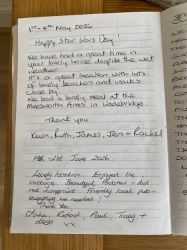 1st - 4th May 2026
Happy Star Wars Day!
We have had a great time in
your lovely house despite the wet
weather.
It's a great location with lots
of lovely beaches and walks
close by.
We had a lovely meal at the
Molesworth Arms in Wadebridge.
Thank you
Kevin, Ruth, James, Jen + Rachel
June 2026
Lovely location. Enjoyed the
cottage. Beautiful. did
not disappoint. Friendly local pub -
everything we needed.
Thank you
Paul,
xx